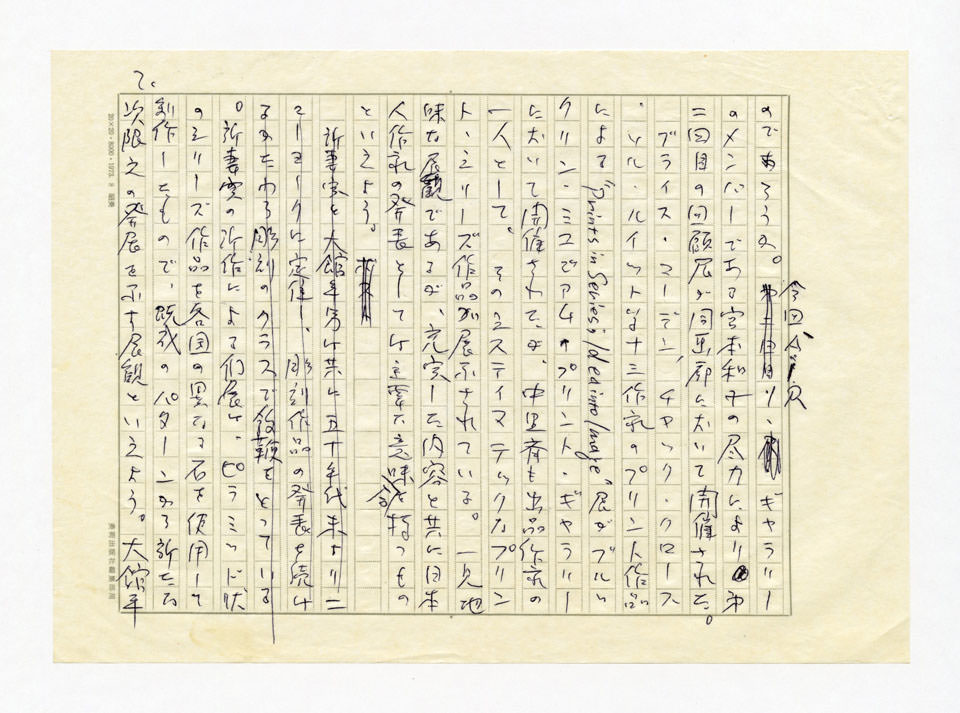 のであろうか。今回
ギャラリー
のメンバーである宮本和子の尽力により第
二回目の回顧展が同画廊に於いて開催された。
ブライス・マーデン、チャック・クロース
、ソル・ルイットなど十三作家のプリント作品
による "Prints in Series; Idea into Image" 展がブルッ
クリン・ミュゼアムのプリント・ギャラリー
に於いて開催されて、中里斉も出品作家の
一人として、そのシスティマテックなプリン
ト・シリーズ作品が展示されている。一見地
味な展観であるが、充実した内容と共に日本
人作家の発表としては重要な意味を持つもの
といえよう。
新妻実と大館年男は共に五十年代末よりニ
ューヨークに定住し、彫刻作品の発表を続け
るかたわら彫刻のクラスで教鞭をとっている
。新妻実の新作による個展は、ピラミッド状
のシリーズ作品を各国の異なる石を使用して
創作したもので、既成のパターンから新たな
次限への発展を示す展観といえよう。大館年
て、
20×20